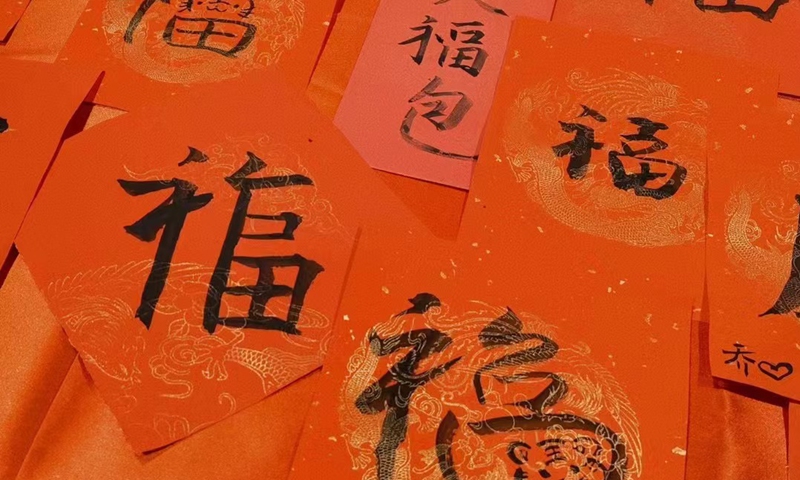 福
福
包
福
福
福
乔♡